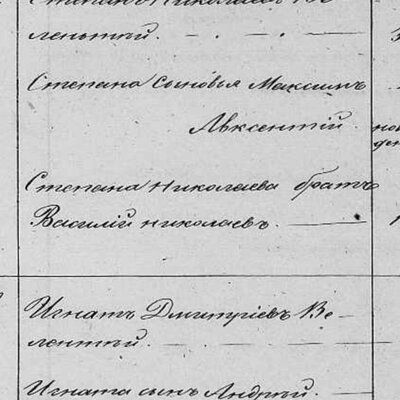 Степанъ Николаевъ Ве-
лентій.
Степана сыновья Максимъ
Авксентій.
Степана Николаева братъ
Василій Николаевъ.
Игнатъ Дмитріевъ Ве-
лентій.
Игната сынъ Андрей.